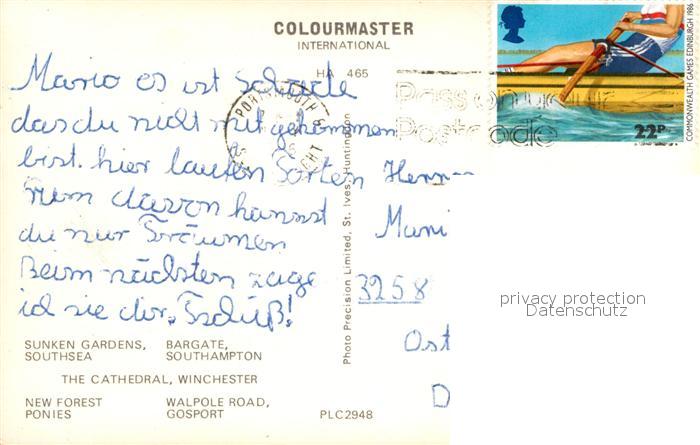 COLOURMASTER
INTERNATIONAL
HA 465
Mario es ist schade
das du nicht mit gekommen
bist. hier laufen Sorten
rum davon kannst
du nur Träumen
Beim nächsten zeige
ich sie dir. Tschüß!
SUNKEN GARDENS, SOUTHSEA
BARGATE, SOUTHAMPTON
THE CATHEDRAL, WINCHESTER
NEW FOREST PONIES
WALPOLE ROAD, GOSPORT
PLC2948
Photo Precision Limited, St. Ives, Huntingdon
PORTSMOUTH &
WIGHT
Pass on your
Postcode
COMMONWEALTH GAMES EDINBURGH 1986
22P
Herrn
Mari
3258
Ost
D
privacy protection
Datenschutz